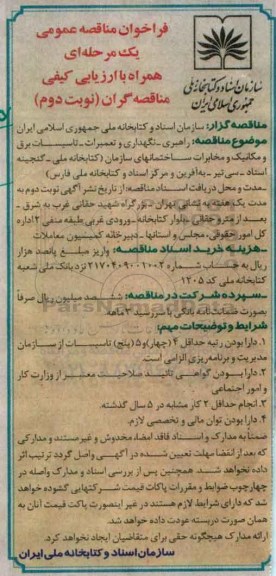 فراخوان مناقصه عمومی
یک مرحله‌ای
همراه با ارزیابی کیفی
مناقصه‌گران (نوبت دوم)
سازمان اسناد و کتابخانه ملی
جمهوری اسلامی ایران
مناقصه گزار: سازمان اسناد و کتابخانه ملی جمهوری اسلامی ایران
موضوع مناقصه: راهبری - نگهداری و تعمیرات - تاسیسات برق
و مکانیک و مخابرات ساختمانهای سازمان (کتابخانه ملی - گنجینه
اسناد - سی تیر - به‌آفرین و مرکز اسناد و کتابخانه ملی فارس)
-مدت و محل دریافت اسناد مناقصه: از تاریخ نشر آگهی نوبت دوم به
مدت یک هفته به نشانی تهران - بزرگراه شهید حقانی غرب به شرق -
بعد از مترو حقانی - بلوار کتابخانه - ورودی غربی طبقه منفی ۲ اداره
کل امور حقوقی، مجلس و استانها - دبیرخانه کمیسیون معاملات
-هزینه خرید اسناد مناقصه: واریز مبلغ پانصد هزار
ریال به حساب شماره ۲۱۷۰۴۰۹۰۰۱۰۰۲ نزد بانک ملی شعبه
کتابخانه ملی کد ۱۲۰۵
-سپرده شرکت در مناقصه: میلیون ریال صرفاً
بصورت ضمانت‌نامه بانکی با سررسید ۳ ماهه.
شرایط و توضیحات مهم:
۱. دارا بودن رتبه حداقل ۴ (چهار) و ۵ (پنج) تاسیسات از سازمان
مدیریت و برنامه‌ریزی الزامی است.
۲. دارا بودن گواهی تائید صلاحیت معتبر از وزارت کار
و امور اجتماعی
۳. انجام حداقل ۲ کار مشابه در ۵ سال گذشته.
۴. دارا بودن توان مالی و تخصصی لازم.
ضمناً به مدارک و اسناد فاقد امضا، مخدوش و غیر مستند و مدارکی
که بعد از انقضا مهلت تعیین شده در آگهی واصل گردد ترتیب اثر
داده نخواهد شد. همچنین پس از بررسی اسناد و مدارک واصله در
چهارچوب ضوابط و مقررات پاکات قیمت شرکتهایی گشوده خواهد
شد که دارای شرایط لازم هستند در غیر اینصورت پاکت قیمت آنان به
همان صورت دربسته عودت داده خواهد شد.
ارائه مدارک هیچگونه حقی برای متقاضیان ایجاد نخواهد کرد.
سازمان اسناد و کتابخانه ملی ایران